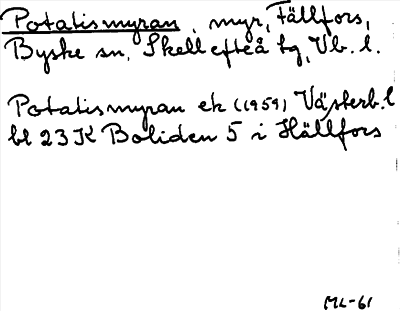 Potatismyran, myr, Fällfors,
Byske sn, Skellefteå tg, Vb. l.
Potatismyran ek (1959) Västerb. l
bl 23 K Boliden 5 i Hällfors
ML-61